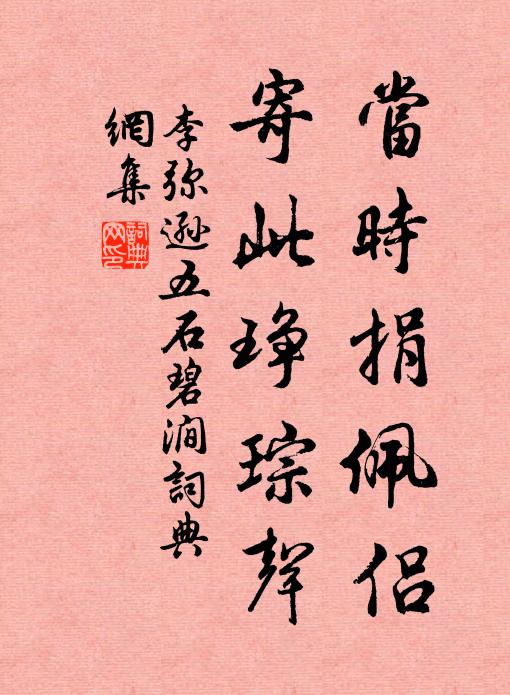 當時捐佩侣
寄此琤琮聲
李弥遜五石碧澗詞典
網集
詞典網印